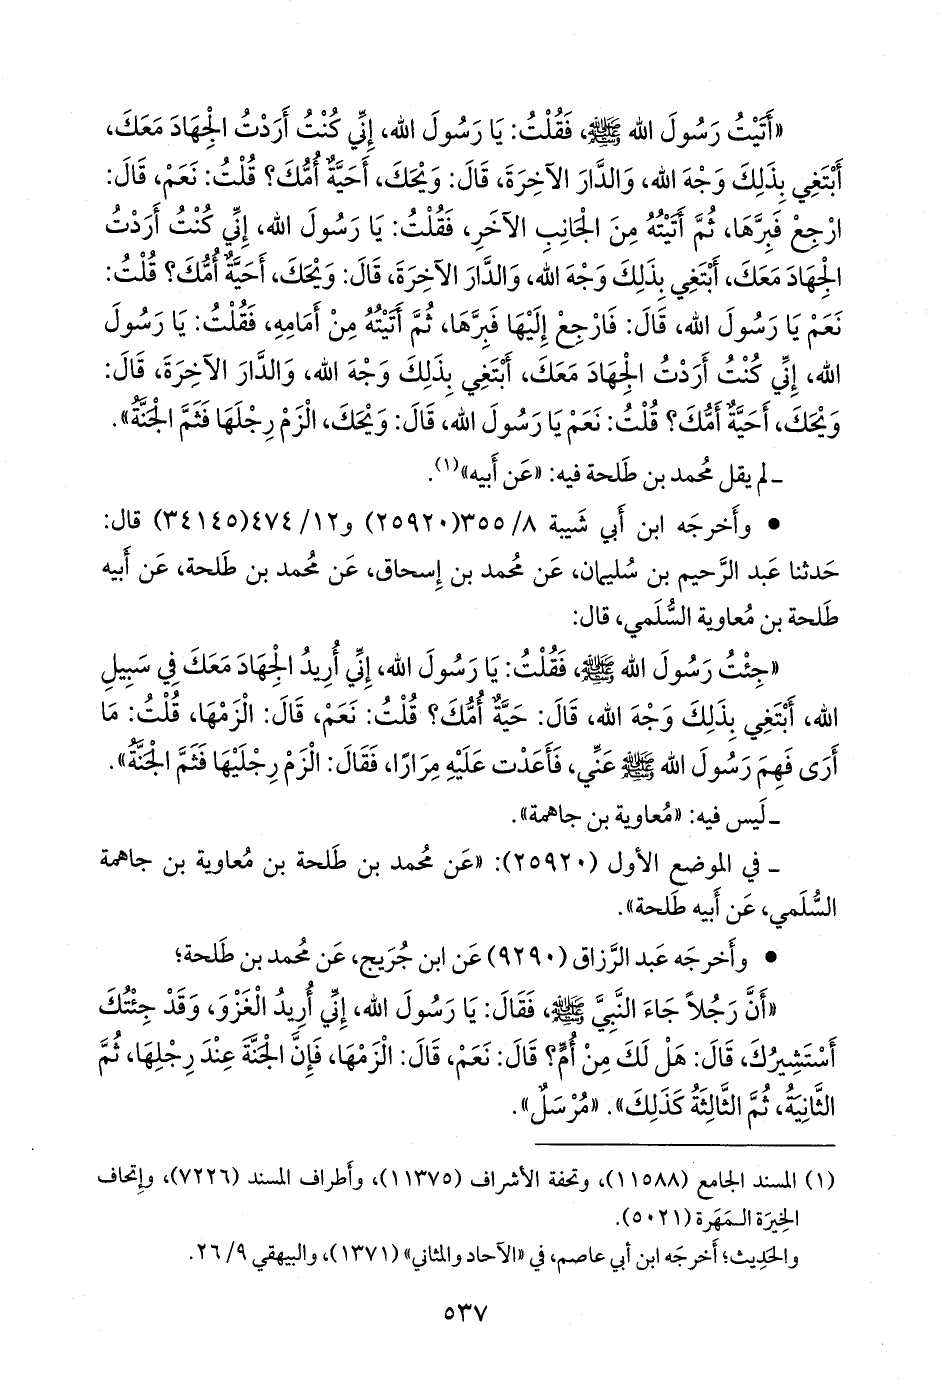 «أَتَيْتُ رَسُولَ الله ﷺ، فَقُلْتُ: يَا رَسُولَ الله، إِنِّي كُنْتُ أَرَدْتُ الْجِهَادَ مَعَكَ،
أَبْتَغِي بِذَلِكَ وَجْهَ الله، وَالدَّارَ الآخِرَةَ، قَالَ: وَيْحَكَ، أَحَيَّةٌ أُمُّكَ؟ قُلْتُ: نَعَمْ، قَالَ:
ارْجِعْ فَبِرَّهَا، ثُمَّ أَتَيْتُهُ مِنَ الْجَانِبِ الآخَرِ، فَقُلْتُ: يَا رَسُولَ الله، إِنِّي كُنْتُ أَرَدْتُ
الْجِهَادَ مَعَكَ، أَبْتَغِي بِذَلِكَ وَجْهَ الله، وَالدَّارَ الآخِرَةَ، قَالَ: وَيْحَكَ، أَحَيَّةٌ أُمُّكَ؟ قُلْتُ:
نَعَمْ يَا رَسُولَ الله، قَالَ: فَارْجِعْ إِلَيْهَا فَبِرَّهَا، ثُمَّ أَتَيْتُهُ مِنْ أَمَامِهِ، فَقُلْتُ: يَا رَسُولَ
الله، إِنِّي كُنْتُ أَرَدْتُ الْجِهَادَ مَعَكَ، أَبْتَغِي بِذَلِكَ وَجْهَ الله، وَالدَّارَ الآخِرَةَ، قَالَ:
وَيْحَكَ، أَحَيَّةٌ أُمُّكَ؟ قُلْتُ: نَعَمْ يَا رَسُولَ الله، قَالَ: وَيْحَكَ، الْزَمْ رِجْلَهَا فَثَمَّ الْجَنَّةُ».
ـ لم يقل مُحمد بن طَلحة فيه: «عَن أَبيه»(١).
• وأَخرجَه ابن أَبي شَيبة ٨/ ٣٥٥(٢٥٩٢٠) و١٢/ ٤٧٤(٣٤١٤٥) قال:
حَدثنا عَبد الرَّحيم بن سُليمان، عَن مُحمد بن إِسحاق، عَن مُحمد بن طَلحة، عَن أَبيه
طَلحة بن مُعاوية السُّلَمي، قال:
«جِئْتُ رَسُولَ الله ﷺ، فَقُلْتُ: يَا رَسُولَ الله، إِنِّي أُرِيدُ الْجِهَادَ مَعَكَ فِي سَبِيلِ
الله، أَبْتَغِي بِذَلِكَ وَجْهَ الله، قَالَ: حَيَّةٌ أُمُّكَ؟ قُلْتُ: نَعَمْ، قَالَ: الْزَمْهَا، قُلْتُ: مَا
أَرَى فَهِمَ رَسُولَ الله ﷺ عَنِّي، فَأَعَدْت عَلَيْهِ مِرَارًا، فَقَالَ: الْزَمْ رِجْلَيْهَا فَثَمَّ الْجَنَّةُ».
ـ لَيس فيه: «مُعاوية بن جاهمة».
ـ في الموضع الأول (٢٥٩٢٠): «عَن مُحمد بن طَلحة بن مُعاوية بن جاهمة
السُّلَمي، عَن أَبيه طَلحة».
• وأَخرجَه عَبد الرَّزاق (٩٢٩٠) عَن ابن جُرَيج، عَن مُحمد بن طَلحة؛
«أَنَّ رَجُلاً جَاءَ النَّبِيَّ ﷺ، فَقَالَ: يَا رَسُولَ الله، إِنِّي أُرِيدُ الْغَزْوَ، وَقَدْ جِئْتُكَ
أَسْتَشِيرُكَ، قَالَ: هَلْ لَكَ مِنْ أُمٍّ؟ قَالَ: نَعَمْ، قَالَ: الْزَمْهَا، فَإِنَّ الْجَنَّةَ عِنْدَ رِجْلِهَا، ثُمَّ
الثَّانِيَةُ، ثُمَّ الثَّالِثَةُ كَذَلِكَ». «مُرْسَلٌ».
(١) المسند الجامع (١١٥٨٨)، وتحفة الأشراف (١١٣٧٥)، وأَطراف المسند (٧٢٢٦)، وإِتحاف
الخِيرَة الـمَهَرة (٥٠٢١).
والحَدِيث؛ أَخرجَه ابن أَبي عاصم، في «الآحاد والمثاني» (١٣٧١)، والبيهقي ٩/ ٢٦.
٥٣٧